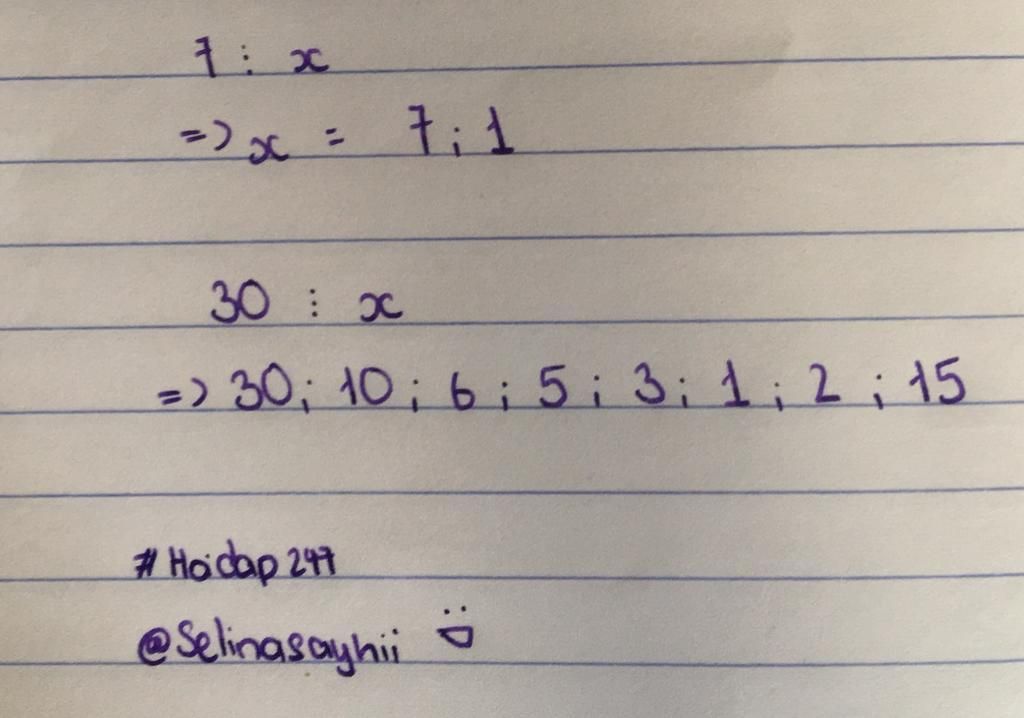 7 ⋮ x
=> x = 7 ; 1
30 ⋮ x
=> 30 ; 10 ; 6 ; 5 ; 3 ; 1 ; 2 ; 15
# Hoidap 247
@Selinasayhii